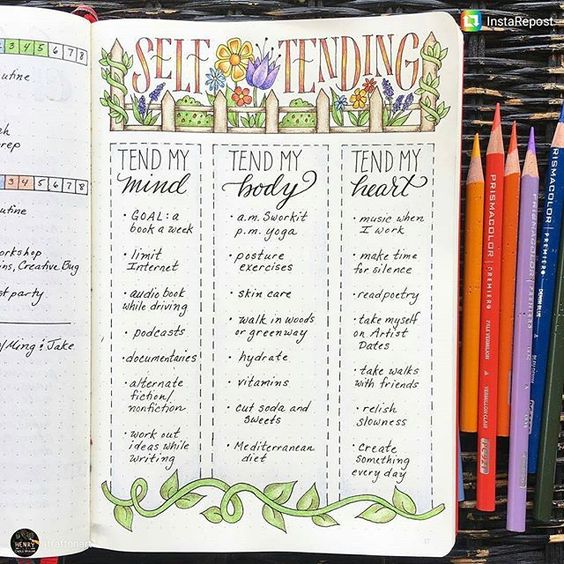 InstaRepost
3 4 5 6 7 8
utine
rep
3 4 5 6 7 8
utine
orkshop
ns, Creative Bug
t party
/Ming & Jake
SELF TENDING
TEND MY
mind
• GOAL: a
book a week
• limit
Internet
• audio book
while driving
• podcasts
• documentaries
• alternate
fiction/
nonfiction
• work out
ideas while
writing
TEND MY
body
• a.m. Sworkit
p.m. yoga
• posture
exercises
• skin care
• walk in woods
or greenway
• hydrate
• vitamins
• cut soda and
sweets
• Mediterranean
diet
TEND MY
heart
• music when
I work
• make time
for silence
• read poetry
• take myself
on Artist
Dates
• take walks
with friends
• relish
slowness
• Create
something
every day
17
PRISMACOLOR PREMIER
PRISMACOLOR PREMIER
HENRY